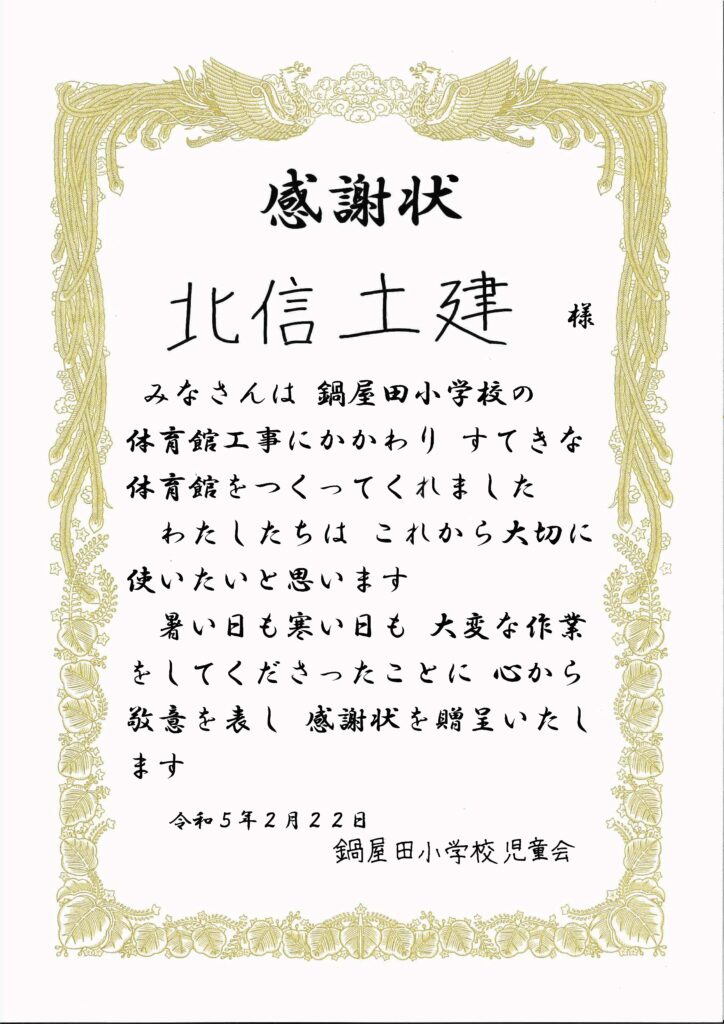 感謝状
北信土建 様
みなさんは 鍋屋田小学校の
体育館工事にかかわり すてきな
体育館をつくってくれました
わたしたちは これから大切に
使いたいと思います
暑い日も寒い日も 大変な作業
をしてくださったことに 心から
敬意を表し 感謝状を贈呈いたし
ます
令和5年2月22日
鍋屋田小学校児童会